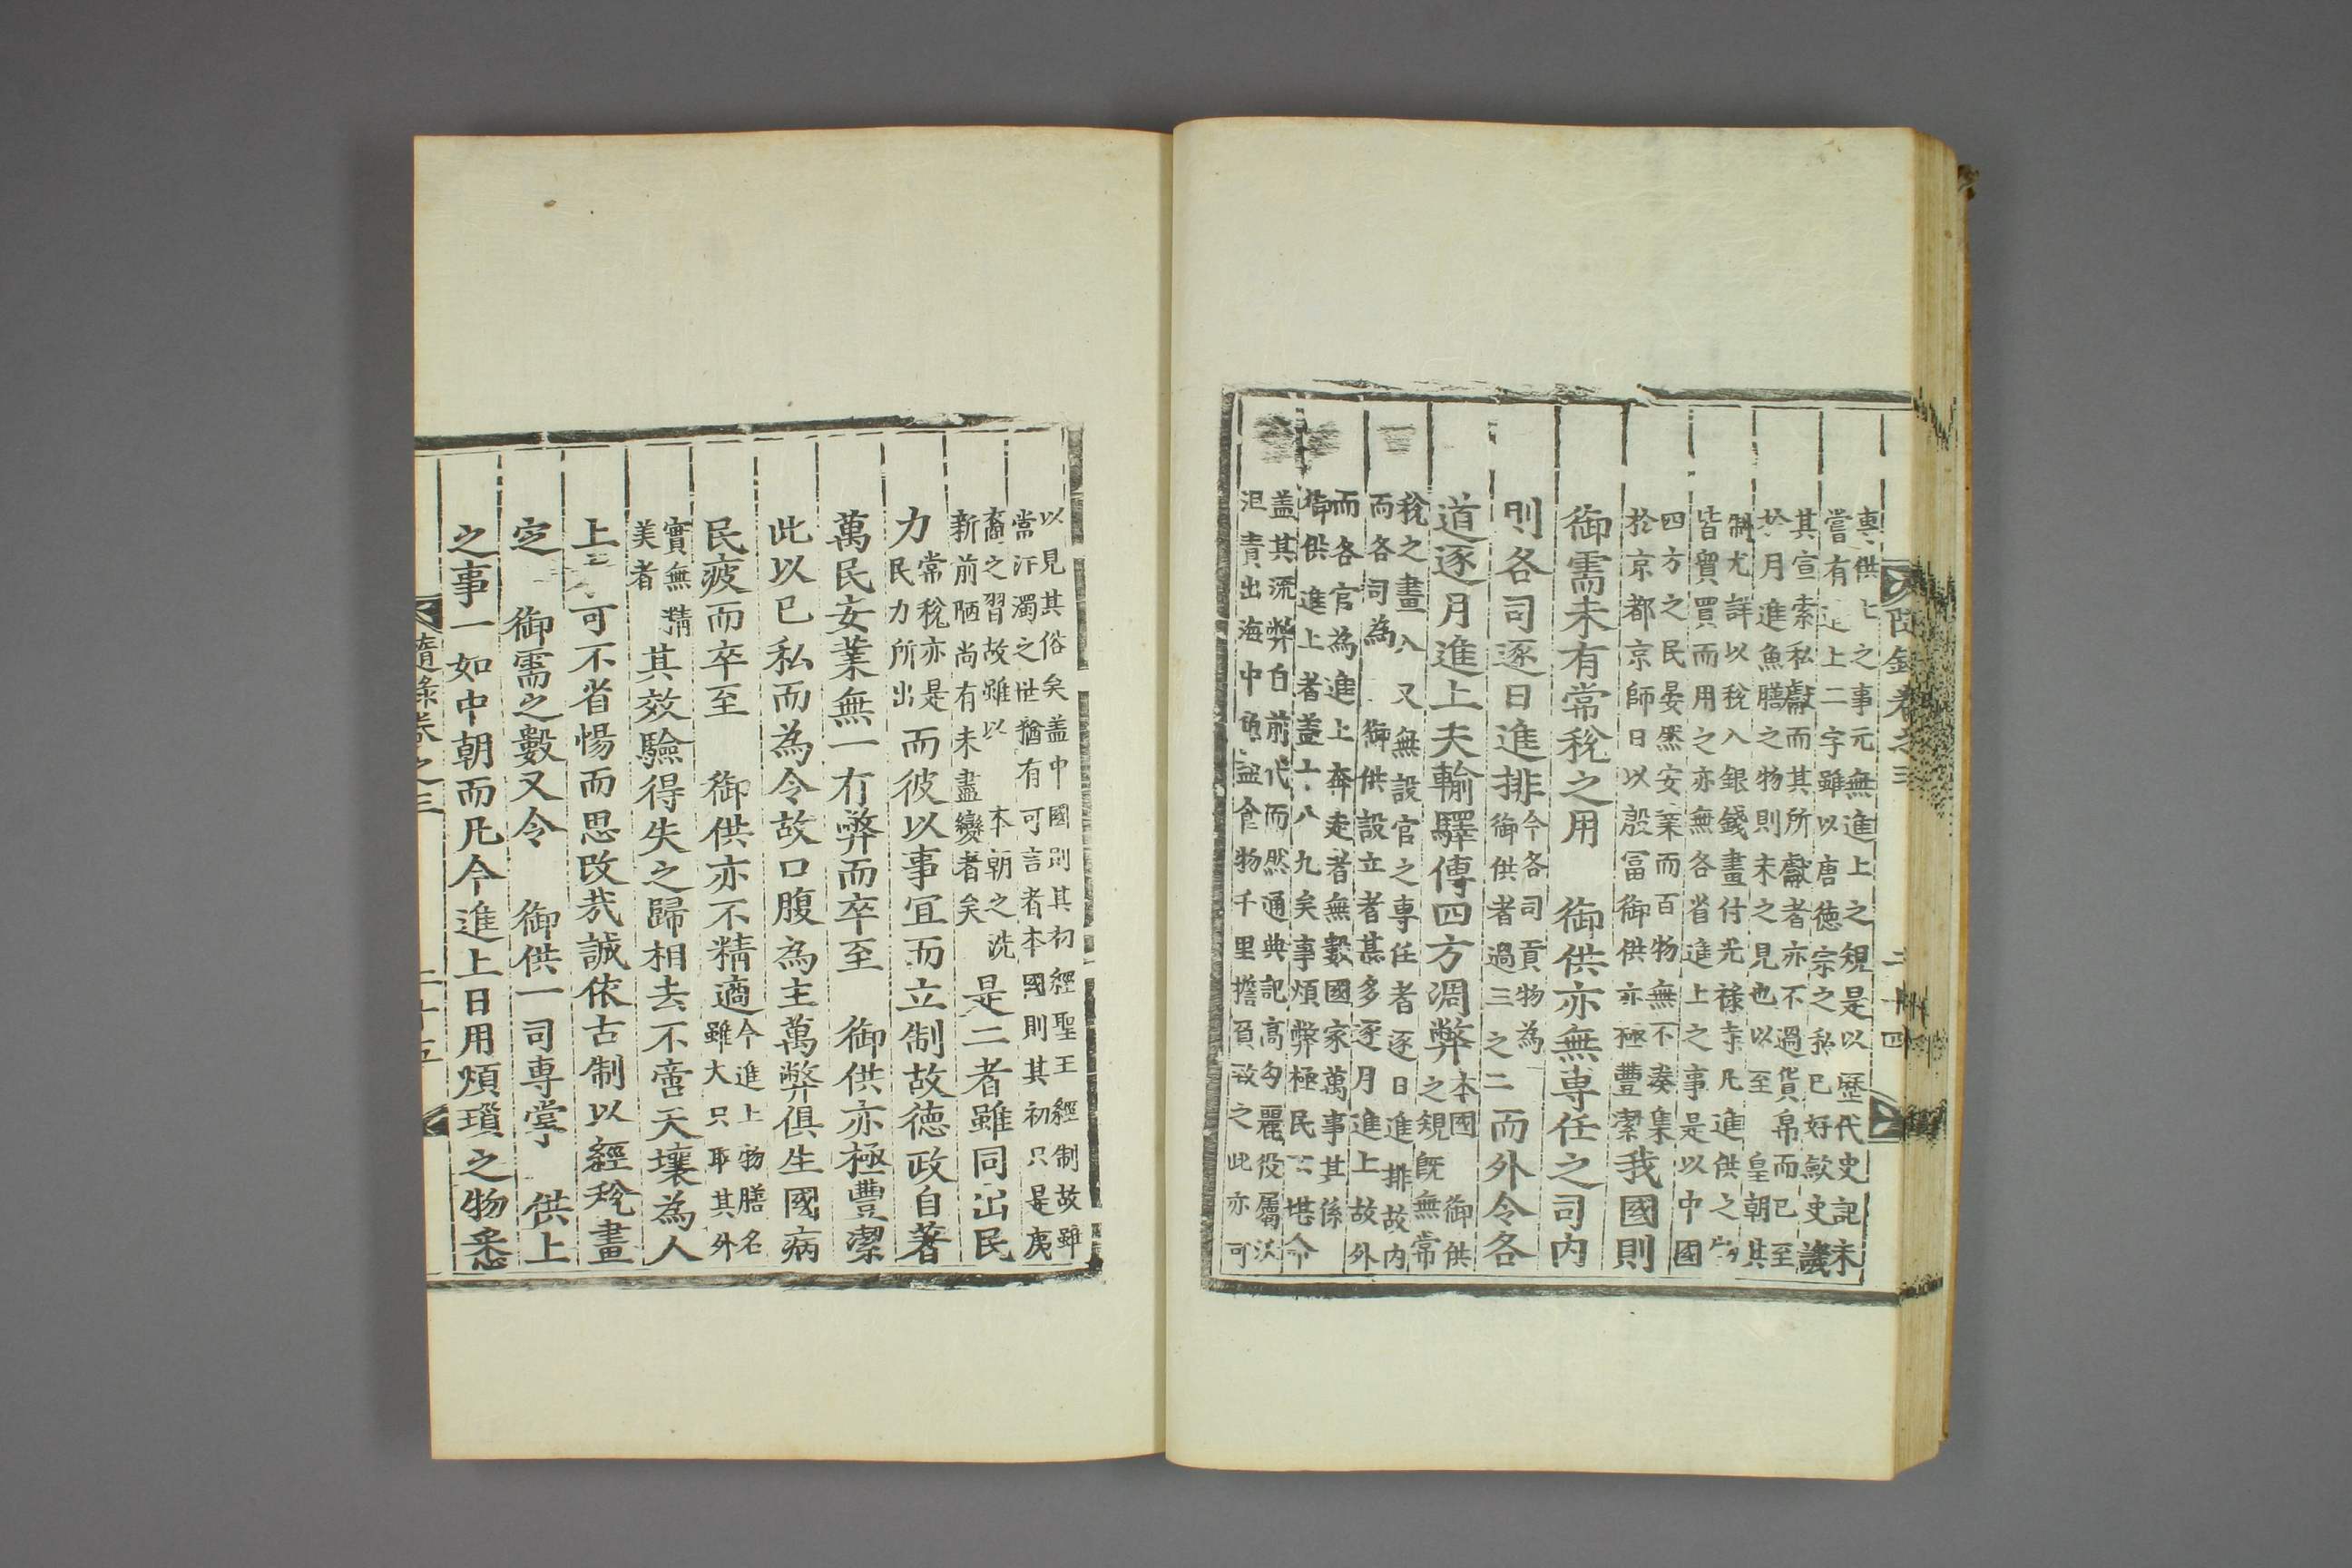 隨錄卷之三
二十四
專供上之事元無進上之規是以歷代史記未
嘗有進上二字雖以唐德宗之私己好歛史譏
其宣索私獻而其所獻者亦不過貨帛而已至
於月進魚膳之物則未之見也以至皇朝其
制尤詳以稅入銀錢畫付光祿寺凡進供之物
皆貿買而用之亦無各省進上之事是以中國
四方之民晏然安業而百物無不湊集
於京都京師日以殷富御供亦極豐潔
我國則
御需未有常稅之用 御供亦無專任之司內
則各司逐日進排
今各司貢物為
御供者過三之二
而外令各
道逐月進上夫輸驛傳四方凋弊
本國 御供
之規旣無常
稅之畫入又無設官之專任者逐日進排故內
而各司為 御供設立者甚多逐月進上故外
而各官為進上奔走者無數國家萬事其係
御供進上者盖十八九矣事煩弊極民不堪命
盖其流弊自前代而然通典記高句麗役屬沃
沮責出海中魚盐食物千里擔負致之此亦可
以見其俗矣盖中國則其初經聖王經制故雖
當汙濁之世猶有可言者本國則其初只是夷
裔之習故雖以 本朝之洗
新前陋尚有未盡變者矣
是二者雖同出民
力
常稅亦是
民力所出
而彼以事宜而立制故德政自著
萬民安業無一冇弊而卒至 御供亦極豐潔
此以己私而為令故口腹為主萬弊俱生國病
民疲而卒至 御供亦不精適
今進上物膳名
雖大只取其外
實無精
美者
其效驗得失之歸相去不啻天壤為人
上可不省惕而思改哉誠依古制以經稅畫
定 御需之數又令 御供一司專掌 供上
之事一如中朝而凡今進上日用煩瑣之物悉
隨錄卷之三
二十五